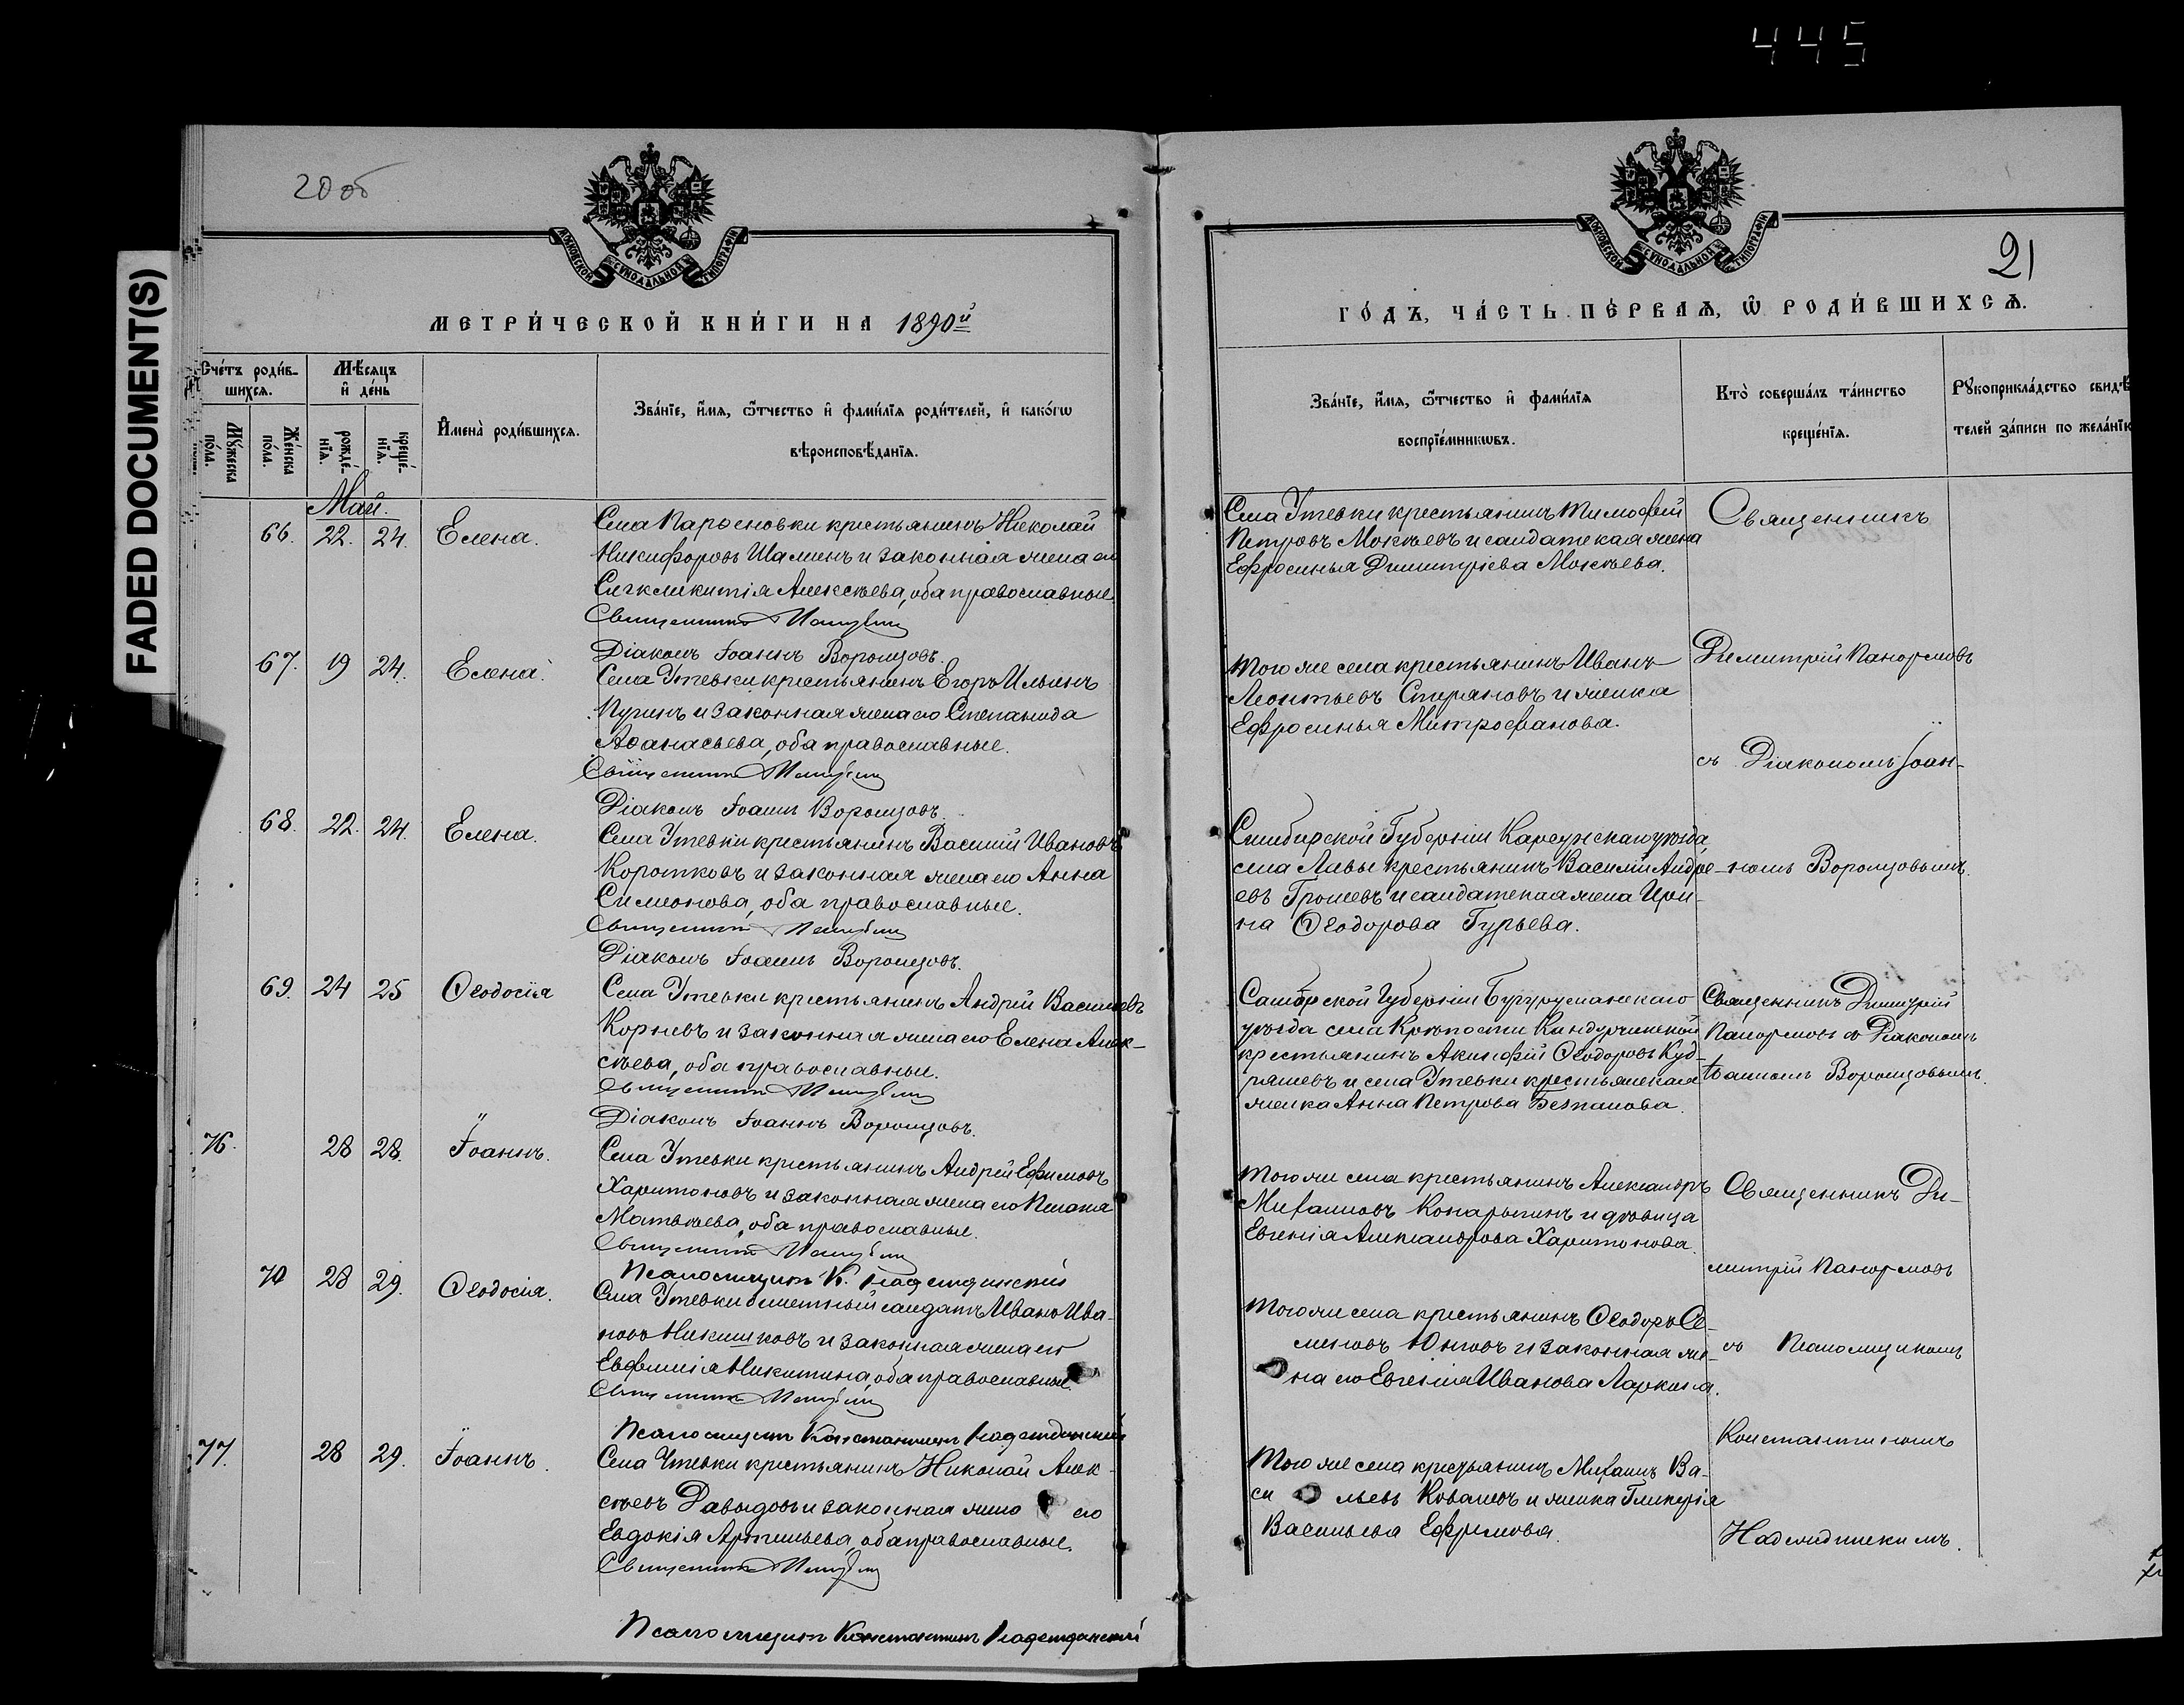 445
20 об
21
FADED DOCUMENT(S)
МОСКОВСКОЙ СѴНОДАЛЬНОЙ ТИПОГРАФІИ
МЕТРИ́ЧЕСКОЙ КНИ́ГИ НА 1890й
Сче́тъ роди́в-
шихся.
Мѣ́сяцъ
и҆ де́нь
Му́жеска
по́ла.
Же́нска
по́ла.
рожде́-
нїѧ.
креще́-
нїѧ.
И҆мена̀ роди́вшихся.
Зва́нїе, и҆́мя, ѻ҆́тчество и҆ фами́лїѧ роди́телей, и҆ како́гѡ
вѣроисповѣ́данїѧ.
Май.
66. 22. 24. Елена.
Села Парѳеновки крестьянинъ Николай
Никифоровъ Шаминъ и законная жена его
Сигклитикія Алексѣева, оба православные.
Священникъ
Діаконъ Іоаннъ Воронцовъ.
67. 19 24. Елена.
Села Утевки крестьянинъ Егоръ Ильинъ
Пугинъ и законная жена его Степанида
Аѳанасьева, оба православные.
Священникъ
Діаконъ Іоаннъ Воронцовъ.
68. 22. 24. Елена.
Села Утевки крестьянинъ Василий Ивановъ
Коротковъ и законная жена его Анна
Симеонова, оба православные.
Священникъ
Діаконъ Іоаннъ Воронцовъ.
69. 24 25 Ѳеодосія
Села Утевки крестьянинъ Андрей Васильевъ
Корневъ и законная жена его Елена Алек-
сѣева, оба православные.
Священникъ
Діаконъ Іоаннъ Воронцовъ.
76. 28 28. Іоаннъ.
Села Утевки крестьянинъ Андрей Ефимовъ
Харитоновъ и законная жена его Пелагія
Матвѣева, оба православные.
Священникъ
Псаломщикъ К. Надеждинскій
70 28 29. Ѳеодосія.
Села Утевки билетный солдатъ Иванъ Ива-
новъ Никишковъ и законная жена его
Евфимія Никитина, оба православные.
Священникъ
Псаломщикъ Константинъ Надеждинскій
77. 28 29. Іоаннъ.
Села Утевки крестьянинъ Николай Алек-
сѣевъ Давыдовъ и законная жена его
Евдокія Артемьева, оба православные.
Священникъ
Псаломщикъ Константинъ Надеждинскій
МОСКОВСКОЙ СѴНОДАЛЬНОЙ ТИПОГРАФІИ
ГО́ДЪ, ЧА́СТЬ ПЕ́РВАѦ, Ѡ҆ РОДИ́ВШИХСѦ.
Зва́нїе, и҆́мя, ѻ҆́тчество и҆ фами́лїѧ
воспрїе́мникѡвъ.
Кто̀ соверша́лъ та́инство
креще́нїѧ.
Рꙋкоприкла́дство свидѣ́
телей за́писи по жела́нїю
Села Утевки крестьянинъ Тимофей
Петровъ Мокѣевъ и солдатская жена
Ефросинья Димитріева Мокѣева.
Священникъ
Того же села крестьянинъ Иванъ
Леонтьевъ и женка
Ефросинья Митрофанова.
Димитрій Панормовъ
съ Діакономъ Іоан-
Симбирской Губерніи Карсунскаго уѣзда,
села Лавы крестьянинъ Василій Андре-
евъ Грошевъ и солдатская жена Ири-
на Ѳеодорова Гурьева.
номъ Воронцовымъ.
Самарской Губерніи Бугурусланскаго
уѣзда села Крѣпости Кондурчинской
крестьянинъ Акинфій Ѳеодоровъ Куд-
ряшевъ и села Утевки крестьянская
женка Анна Петрова Безпалова.
Священникъ Димитрій
Панормовъ съ Діакономъ
Іоанномъ Воронцовымъ.
Того же села крестьянинъ Александръ
Михаиловъ Конарыгинъ и дѣвица
Евгенія Александрова Харитонова.
Священникъ Ди-
митрій Панормовъ
Того же села крестьянинъ Ѳеодоръ Се-
меновъ и законная же-
на его Евгенія Иванова Ларкина.
съ Псаломщикомъ
Константиномъ
Того же села крестьянинъ Михаилъ Ва-
сильевъ Ковалевъ и женка Гликерія
Васильева Ефремова.
Надеждинскимъ.